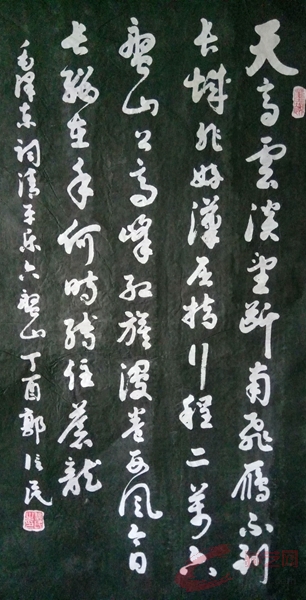 天高雲淡望斷南飛雁不到
長城非好漢屈指行程二萬六
盤山上高峰紅旗漫卷西風今日
長纓在手何時縛住蒼龍
毛澤東詞清平乐六盤山丁酉郭信民